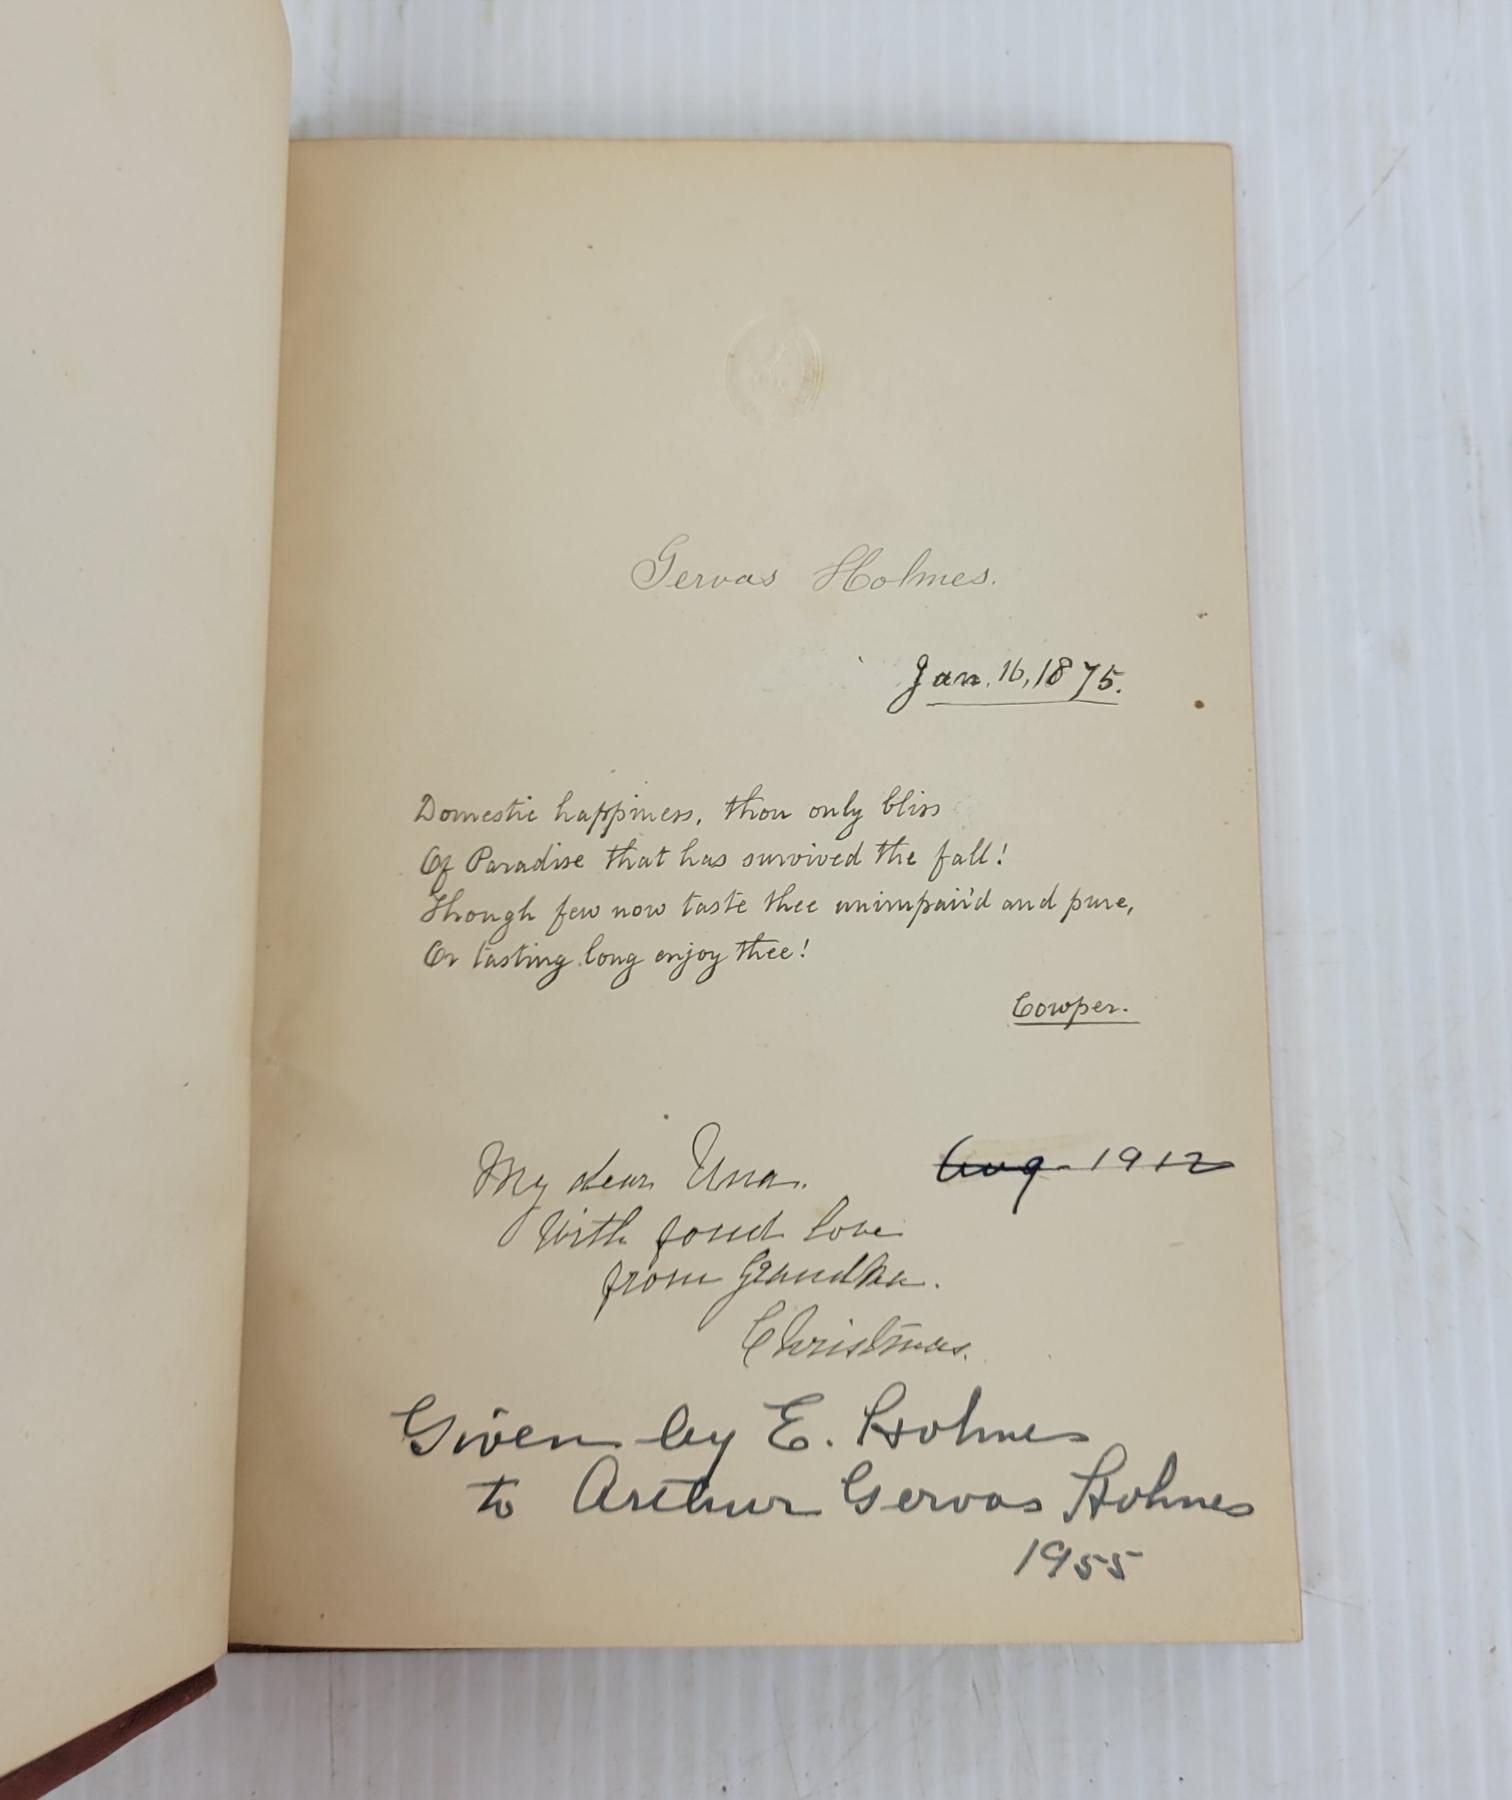 Gervas Holmes.
Jan. 16, 1875.
Domestic happiness, thou only bliss
Of Paradise that has survived the fall!
Though few now taste thee unimpair'd and pure,
Or tasting long enjoy thee!
Cowper.
My dear Una.
Aug 1912
With fond love
from Grandpa.
Christmas.
Given by E. Holmes
to Arthur Gervas Holmes
1955